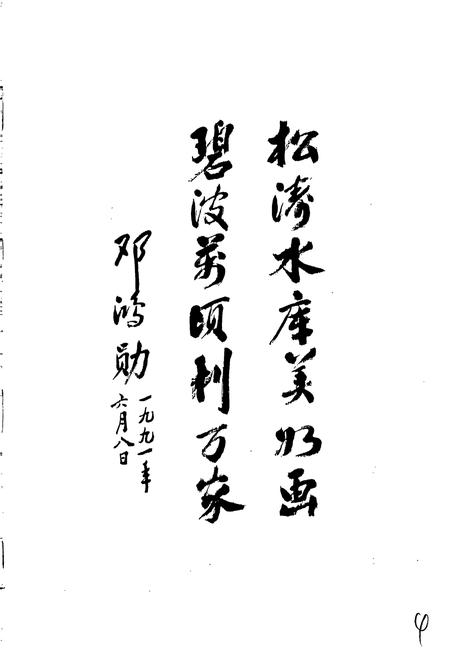 松涛水库美如画
碧波萬顷利万家
邓鸿勋
一九九一年
六月八日
4